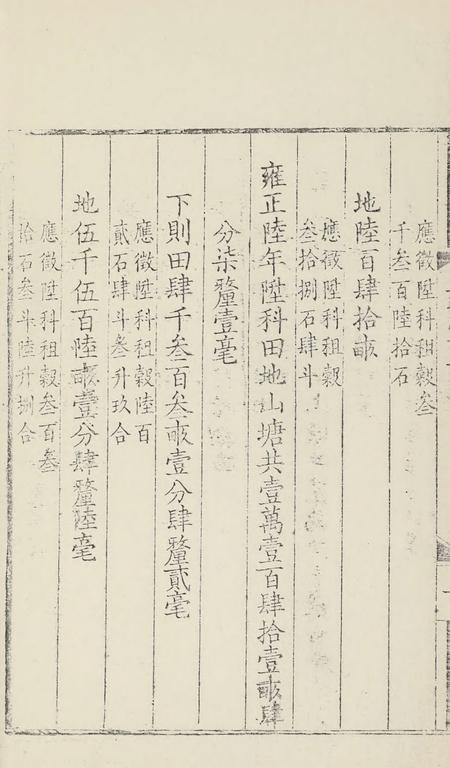 應徵陞科租穀叄
千叄百陸拾石
地陸百肆拾畝
應徵陞科租穀
叄拾捌石肆斗
雍正陸年陞科田地山塘共壹萬壹百肆拾壹畝肆
分柒釐壹毫
下則田肆千叄百叄畝壹分肆釐貳毫
應徵陞科租穀陸百
貳石肆斗叄升玖合
地伍千伍百陸畝壹分肆釐陸毫
應徵陞科租穀叄百叄
拾石叄斗陸升捌合